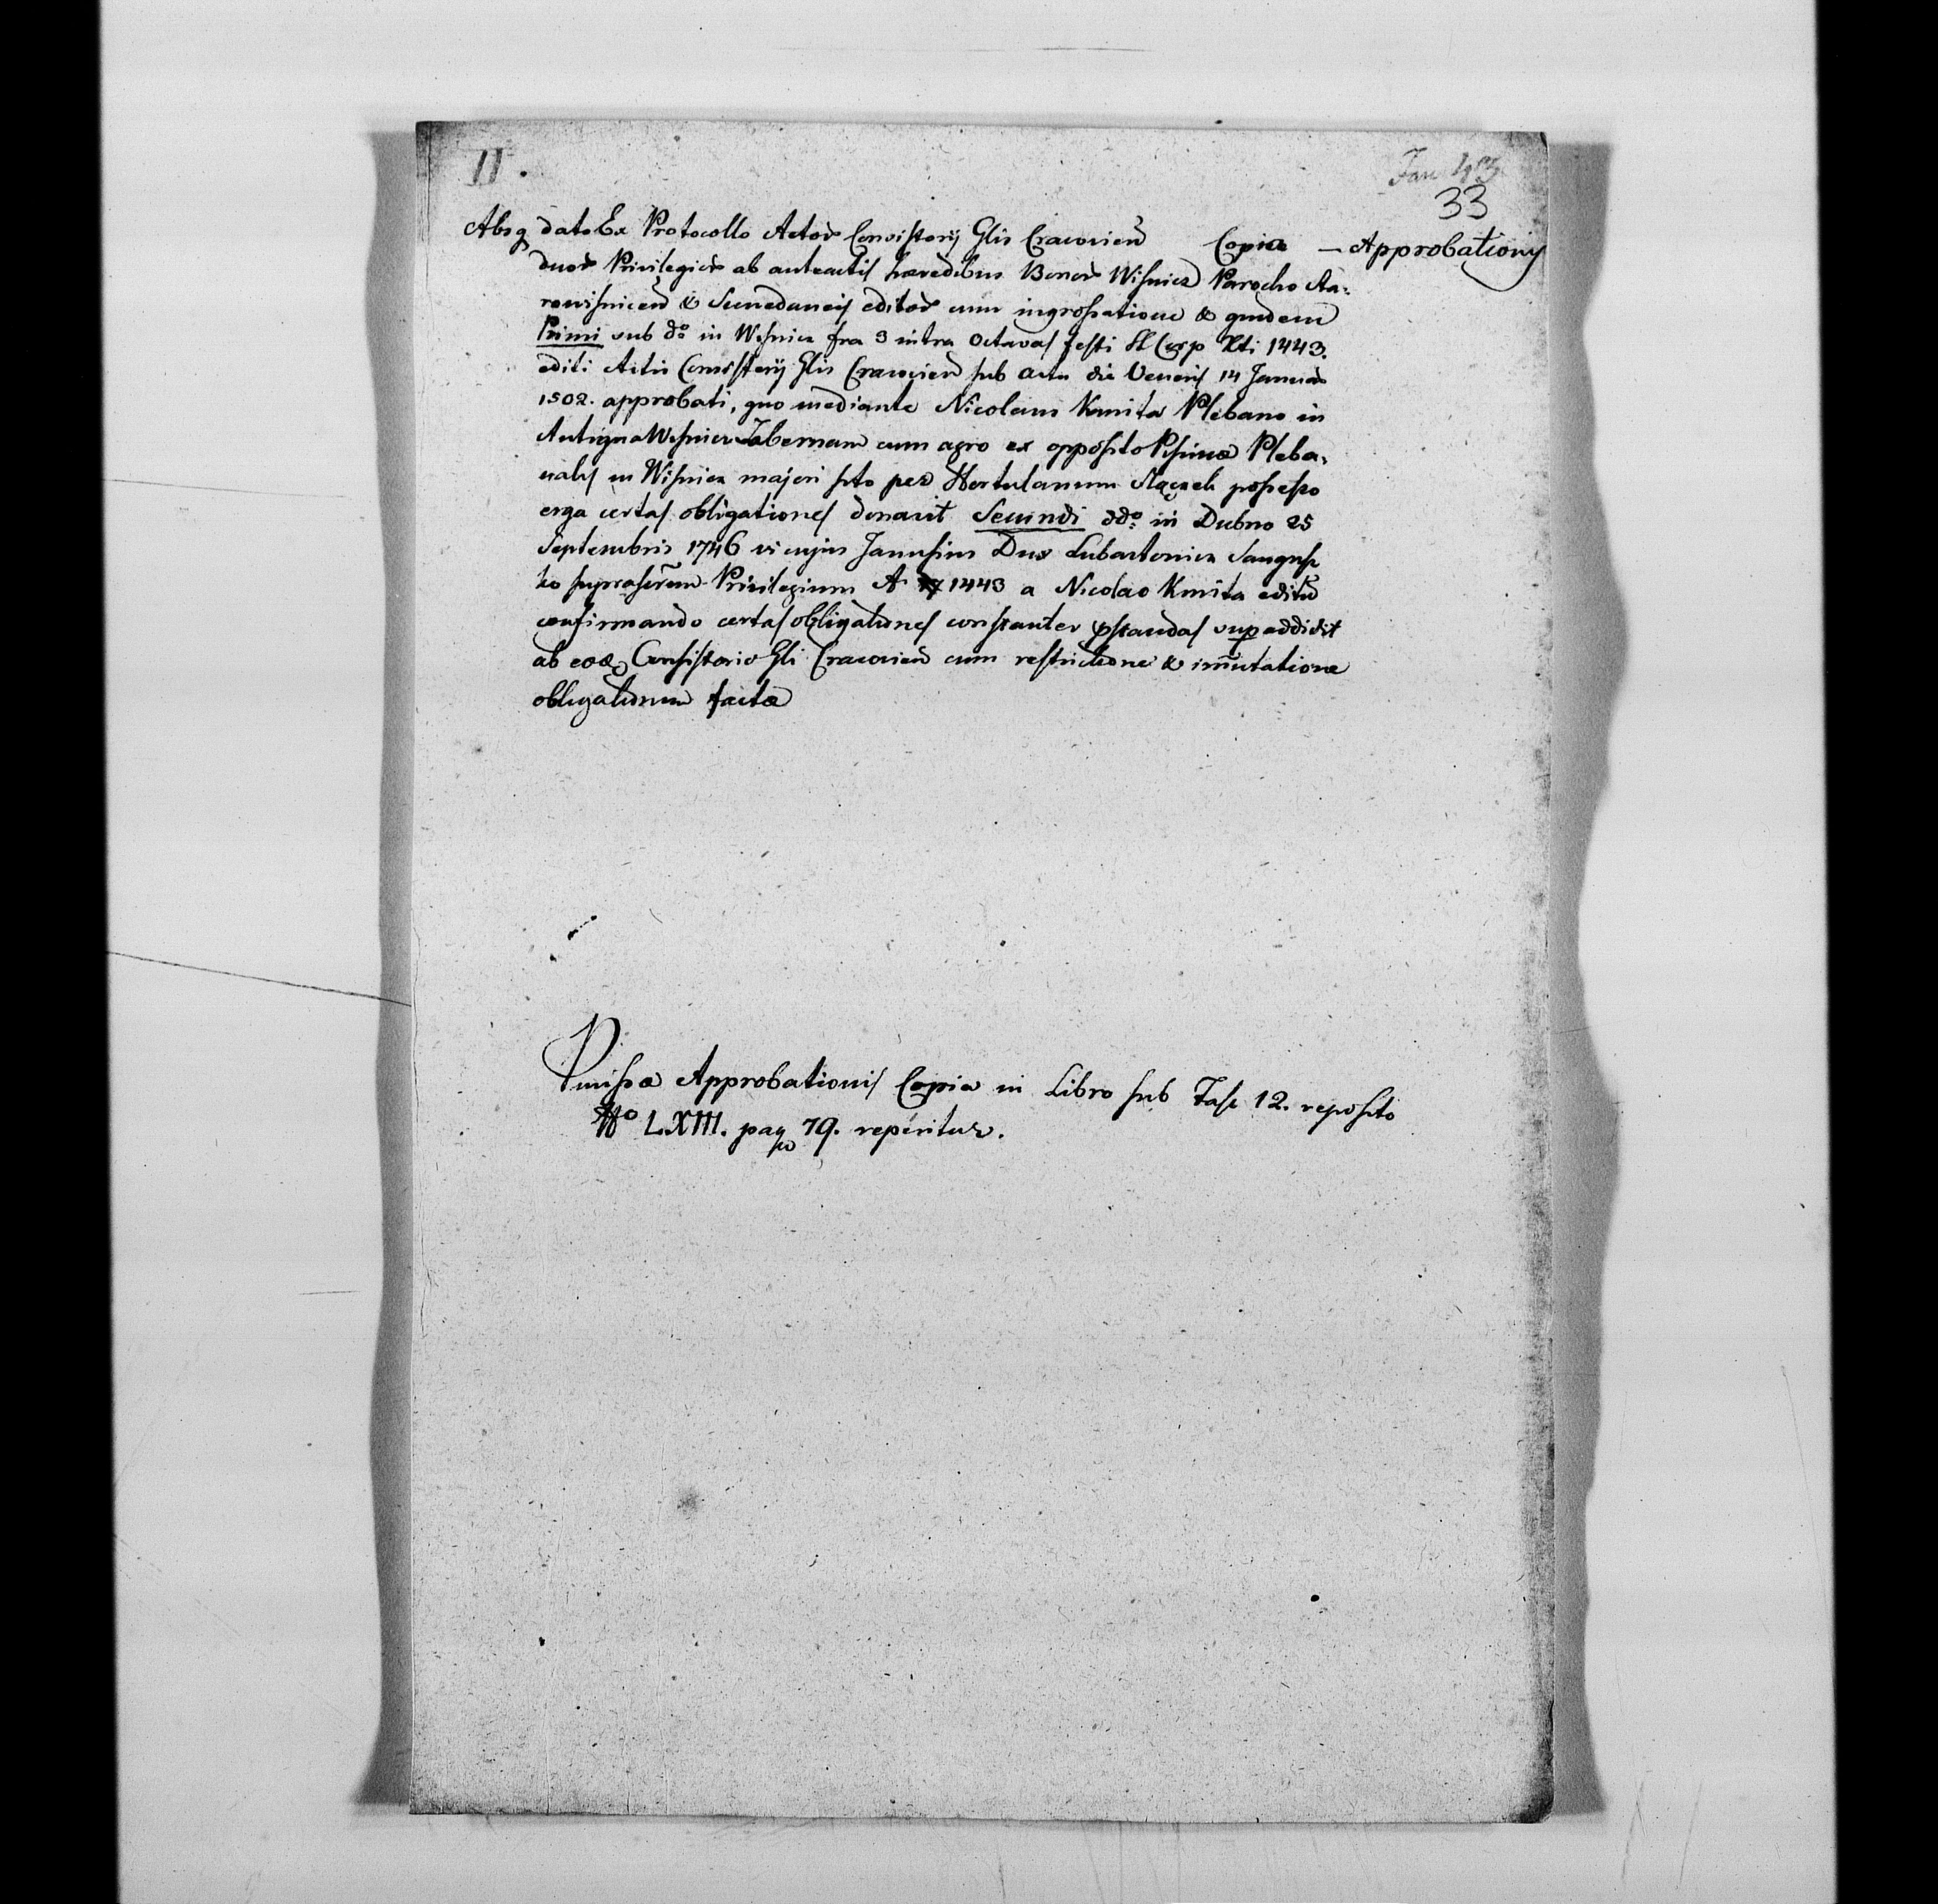 II.
33
Absq dato Ex Protocollo Actor Consistorij Glis Cracovien Copia — Approbationis
duor Privilegior ab anteactis hæredibus Bonor Wisnicz Parocho Sta-
rowisnicen & Succedaneis editor cum ingrossatione & quidem
Primi sub do in Wisnicz fra 3 intra Octavas festi SS Corp Xti 1443.
editi Actis Consistorij Glis Cracovien sub actu die Veneris 14 Januar
1502. approbati, quo mediante Nicolaus Kmita Plebano in
Antiqua Wisnicz Tabernam cum agro ex opposito Piscinæ Pleba-
nalis in Wisnicz majori sito per Hortulanum possesso
erga certas obligationes donavit Secundi ddo in Dubno 25
Septembris 1746 vi cujus Janussius Dux Lubartowicz Sangusz
ko suprascrum Privilegium A 1443 a Nicolao Kmita editu
confirmando certas obligationes constanter pstandas supaddidit
ab eoq Consistorio Gli Cracovien cum restrictione & immutatione
obligationum factæ
Pmissæ Approbationis Copia in Libro sub Fasc 12. reposito
No LXIII. pag 79. reperitur.